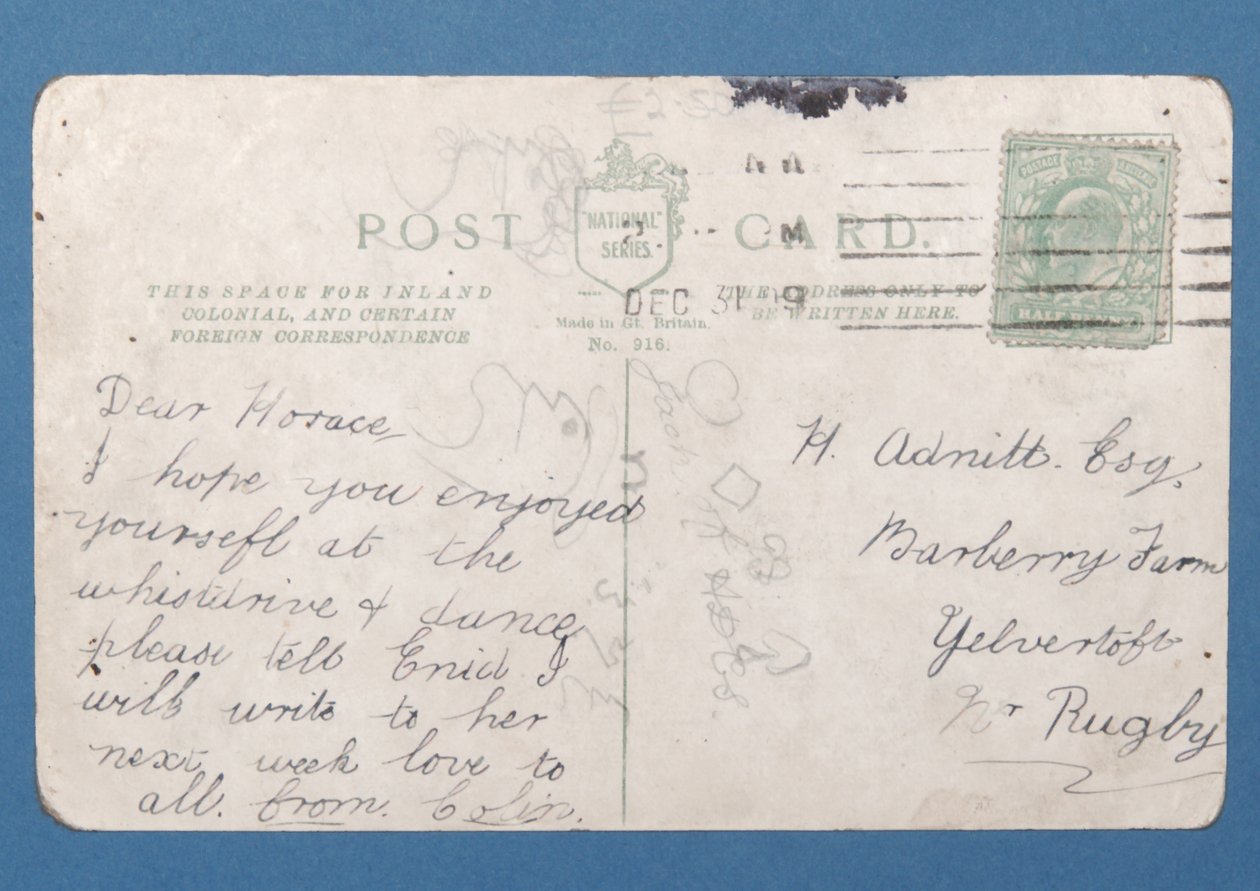 POST CARD.
"NATIONAL"
SERIES.
THIS SPACE FOR INLAND
COLONIAL, AND CERTAIN
FOREIGN CORRESPONDENCE
Made in Gt. Britain.
No. 916.
THE ADDRESS ONLY TO
BE WRITTEN HERE.
DEC 31
POSTAGE
HALF PENNY
Dear Horace,
I hope you enjoyed
yoursefl at the
whistdrive & dance,
please tell Enid I
will write to her
next week love to
all. from. Colin.
H. Adnitt. Esq.
Barberry Farm
Yelvertoft
Nr Rugby